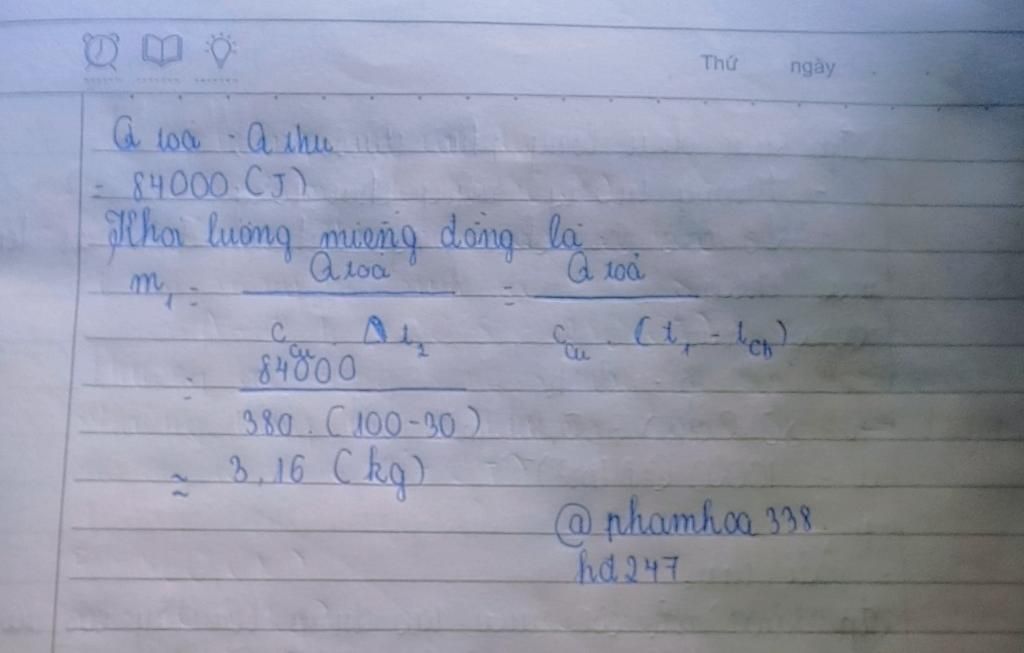 Thứ ngày
Q toả = Q thu
= 84000 (J)
Khối lượng miếng đồng là
m₁ = Q toả / c_Cu . Δt₂ = Q toả / c_Cu . (t₁ - t_cb)
= 84000 / 380 . (100-30)
≈ 3,16 (kg)
@phamhoa338
hd247